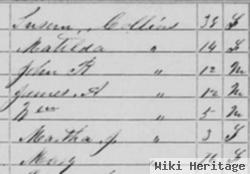 Susan, Collins 38 F
Matilda " 14 F
John R " 12 M
James A " 12 M
" 5 M
Martha J " 3 F
Mary
Wiki Heritage